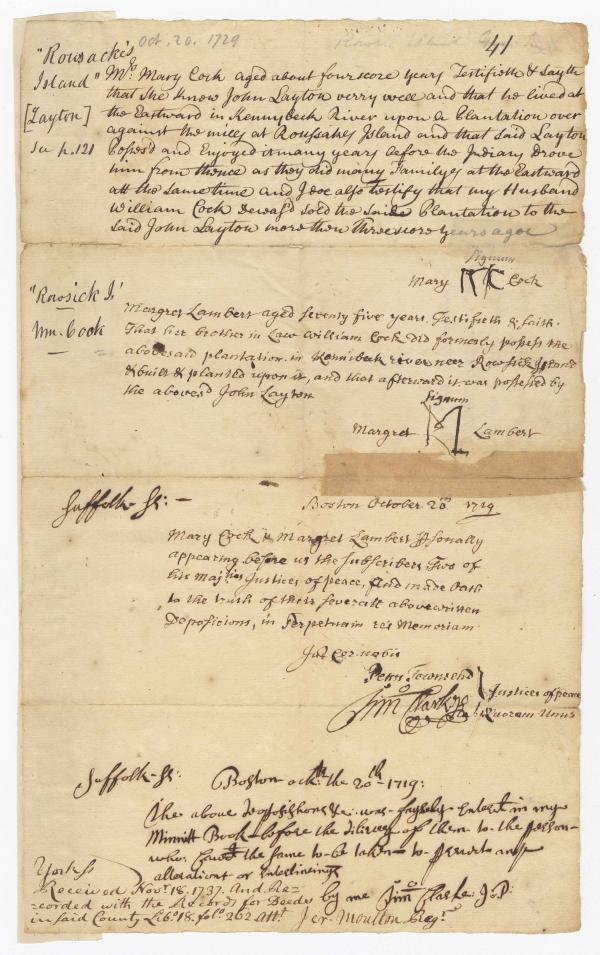 Oct. 20. 1729
41
"Rousacke's
Island"
[Layton]
su p. 121
Mrs Mary Cock aged about fourscore years Testifieth & Sayth
that She Knew John Layton verry well and that he lived at
the Eastward in Kennybeck River upon a Plantation over
against the mills at Roussakes Island and that said Layton
Posses'd and Enjoyed it many years before the Indians Drove
him from thence as they did many Familyes at the Eastward
att the same time and I doe also testify that my Husband
William Cock deceas'd sold the saide Plantation to the
said John Layton more then Threescore years agoe
Signum
Mary Cock
"Rowsick I'
Wm. Cook
Margret Lambert aged seventy five years, Testifieth & saith
That her brother in Law William Cock did formerly possess the
abovesaid plantation in Kennibeck river neer Rowsick Island
& built & planted upon it, and that afterward it was possessed by
the aboves'd John Layton
Signum
Margret Lambert
Suffolk Ss: -
Boston October 20th 1719
Mary Cock & Margret Lambert Psonally
appearing before us the subscribers Two of
his Majties Justices of peace, And made Oath
to the truth of their severall abovewritten
Deposicions, in Perpetuam rei Memoriam
Jurat Cor. nobis
Penn Townsend
Tim Clarke
Justices of peace
& Quorum Unus
Suffolk Ss:
Boston octbr the 20th 1719:
The above Depossishons &c: was Entered in my
Minnitt Book before the Delivery of them to the person
who Caused the same to be taken to prevent any
alterations or Enterlineings
by me Tim Clarke J. P:
York ss
Received Novr. 18. 1737. And Re=
=corded with the Records for Deeds
in said County Libo. 18. folo. 262 Attt
Jer. Moulton Regr.